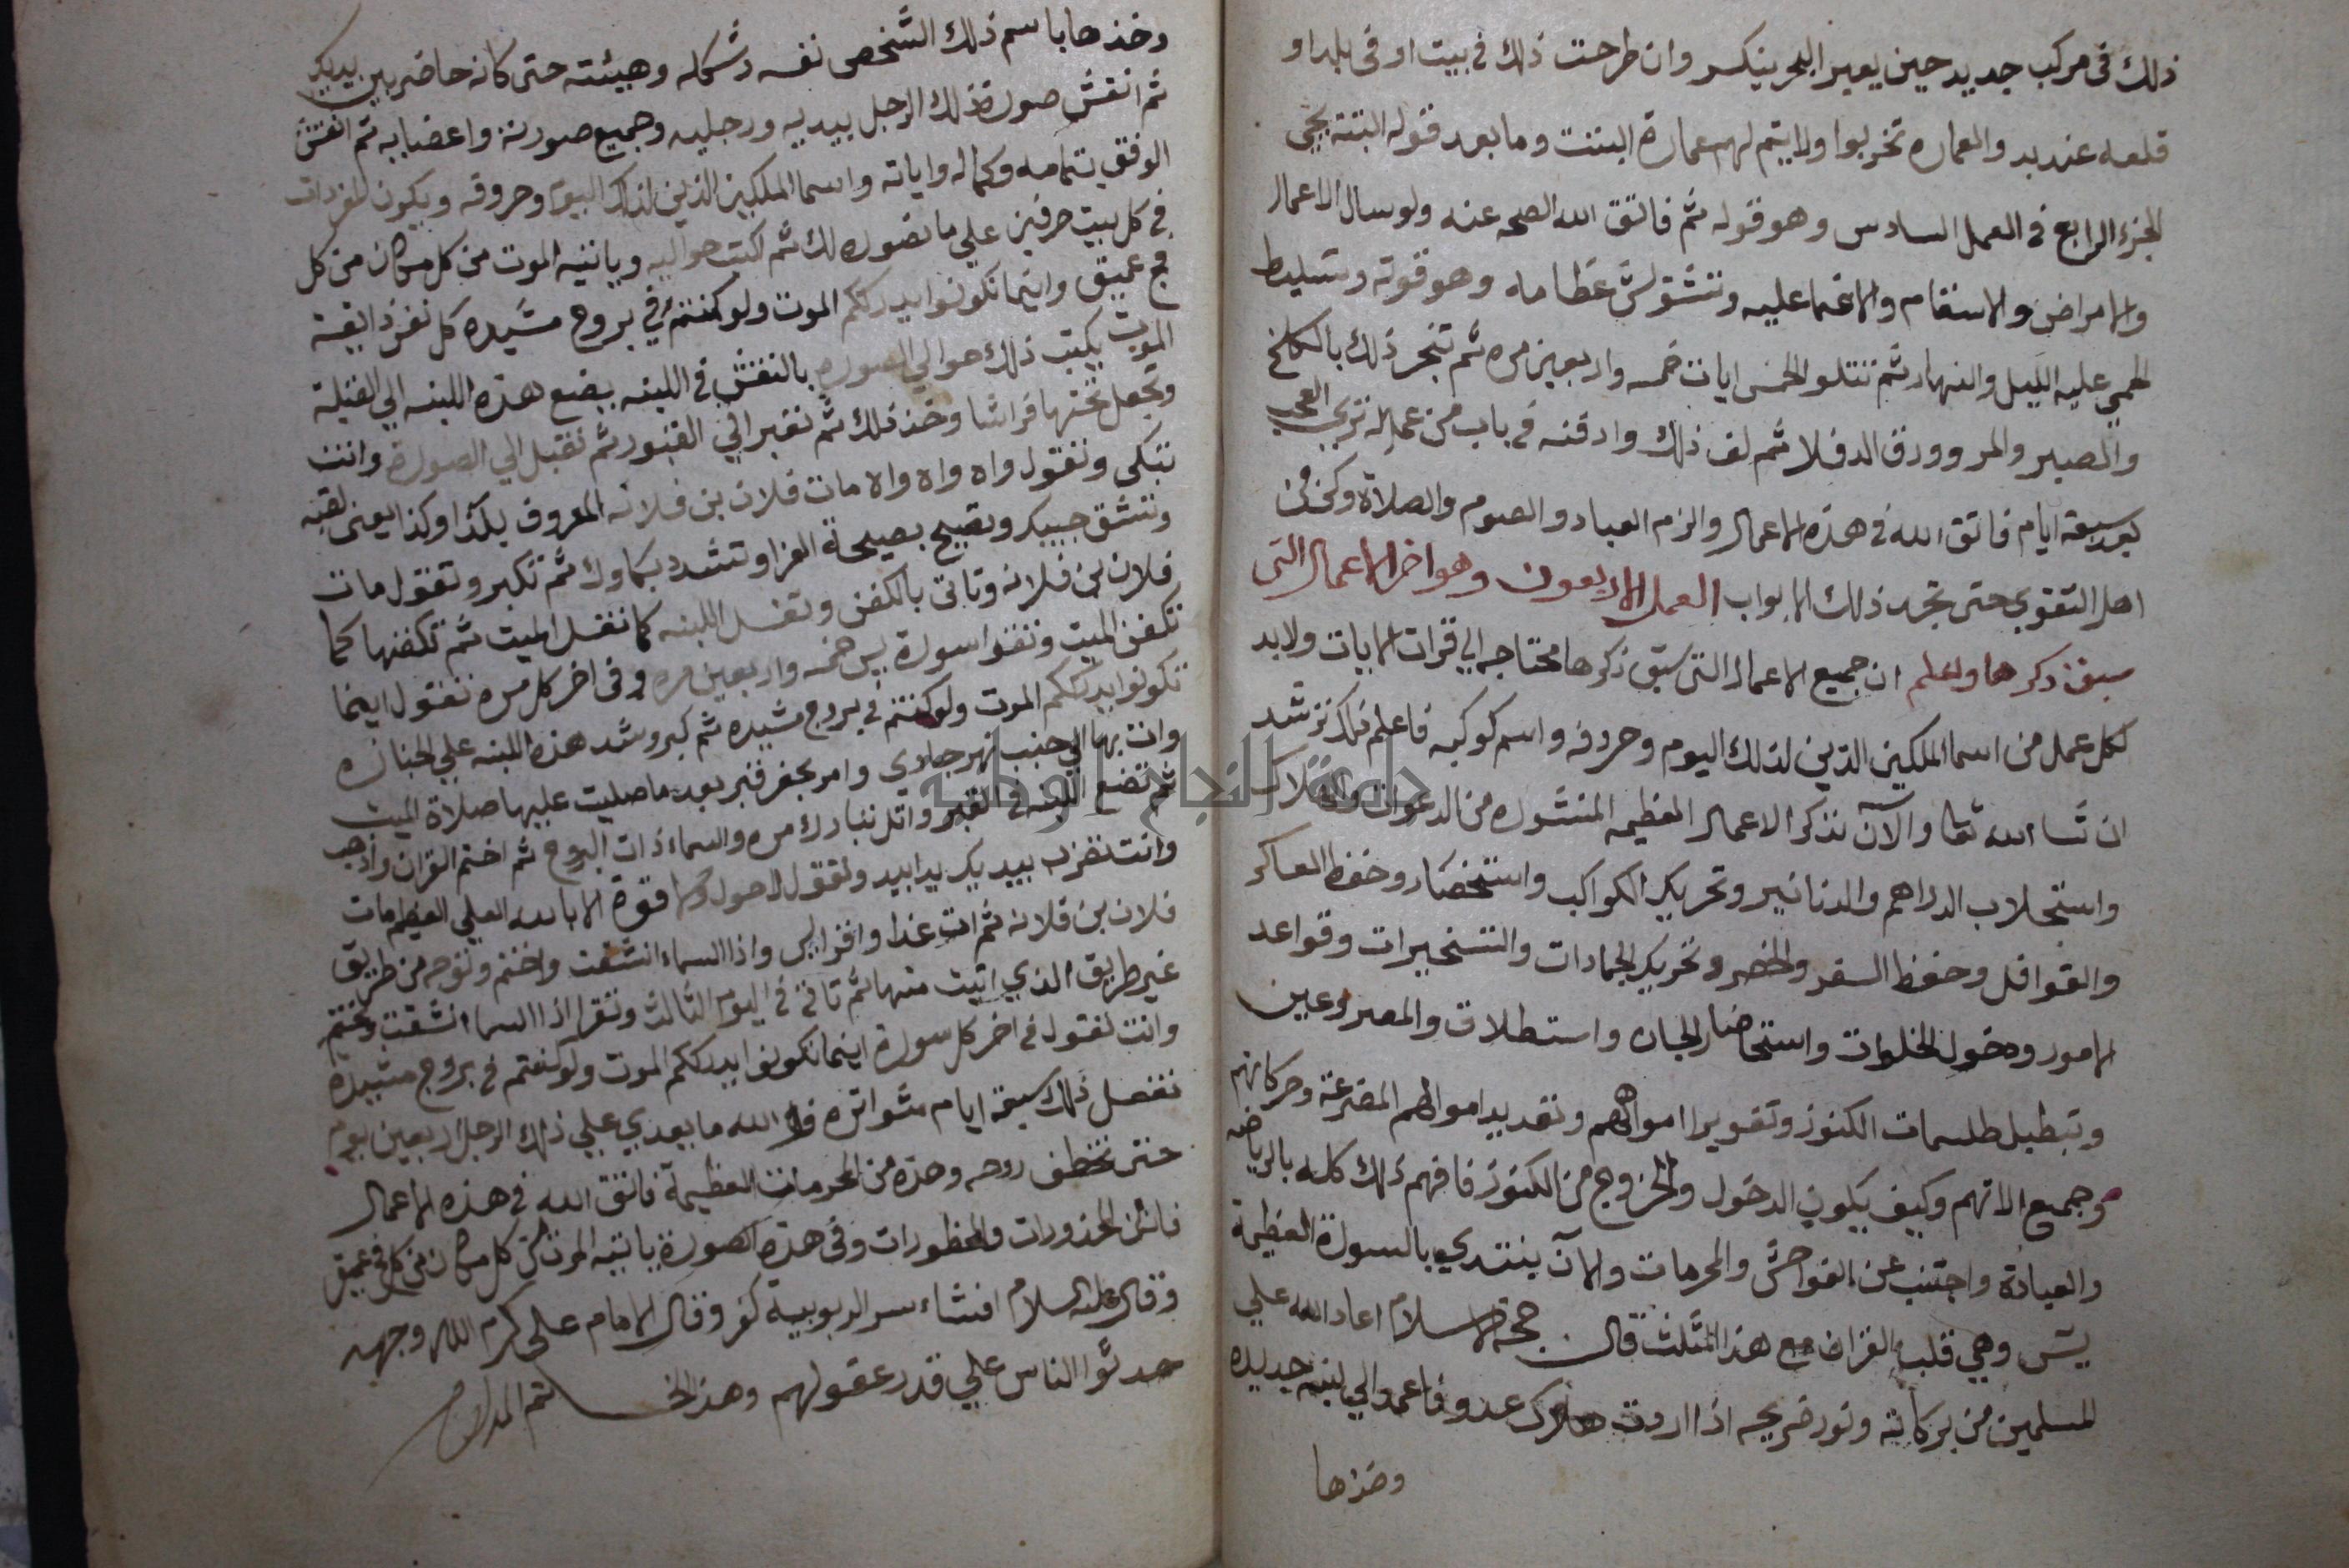 ذلك فى مركب جديد حين يعبر البحر ينكسر وان طرحت ذلك في بيت او فى بلد او
قلعه عند بد والعماره تخربوا ولا يتم لهم عمارة البتت وما بعد قوله البتة يجى
الجزء الرابع في العمل السادس وهو قوله ثم فاتق الله الصحه عنه ولو سال الاعمال
والامراض والاسقام والاغما عليه وتتشوش عظامه وهو قوته وتسليط
الحمي عليه الليل والنهار ثم تتلو الخمس ايات خمسه واربعين مره ثم تبخر ذلك بالكلخ
والصبر والمر وورق الدفلا ثم لف ذلك وادفنه في باب من عمله ترى العجب
بعد سبعة ايام فاتق الله في هذه الاعمال والزم العباد والصوم والصلاة وكن من
اهل التقوى حتى تجرد ذلك الابواب العمل الاربعون وهو اخر الاعمال التى
سبق ذكرها واعلم ان جميع الاعمال التى سبق ذكرها محتاجه الي قرات الايات ولا بد
لكل عمل من اسما الملكين الذين لذلك اليوم وحروفه واسم كوكبه فاعلم ذلك ترشد
ان شاء الله تعا والآن نذكر الاعمال العظيمه المنشوره من الدعوات والاملاك
واستجلاب الدراهم والدنانير وتحريك الكواكب واستحضار وحفظ العساكر
والقوافل وحفظ السفر والحضر وتحريك الجمادات والتسخيرات وقواعد
الامور ودخول الخلوات واستحاضار الجان واستطلاق والمصروعين
وتبطيل طلسمات الكنوز وتقوير اموالهم وتقديد اموالهم المفترعة وحركاتهم
وجميع الاتهم وكيف يكون الدخول والخروج من الكنوز فافهم ذلك كله بالرياضه
والعبادة واجتنب عن الفواحش والمحرمات والآن ينتدي بالسورة العظيمة
يس وهي قلب القران مع هذا المثلث قال حجة الاسلام اعاد الله علي
المسلمين من بركاته ونور ضريحه اذا اردت هلاك عدو فاعمد الي لبنه جديده
وخذها
وخذها باسم ذلك الشخص نفسه وشكله وهيئته حتى كانه حاضر بين يديك
ثم انقش صورة ذلك الرجل بيديه ورجليه وجميع صورته واعضايه ثم انقش
الوفق بتمامه وكماله واياته واسما الملكين الذين لذلك اليوم وحروفه ويكون المفردات
في كل بيت حرفين علي ما نصوره لك ثم اكتب حواليه وياتيه الموت من كل مكان من كل
فج عميق واينما تكونوا يدرككم الموت ولو كنتم في بروج مشيده كل نفس ذايقة
الموت يكتب ذلك حوالي الصوره بالنقش في اللبنه بضع هذه اللبنه الي القبلة
وتجعل تحتها فراشا وخذ ذلك ثم تقبر الي القبور ثم تقبل الي الصورة وانت
تبكى وتقول واه واه واه مات فلان بن فلانه المعروف بكذا وكذا يعنى لقبه
وتشق جيبك وتصيح بصيحة العزا وتشدد بكاوك ثم تكبر وتقول مات
فلان بن فلانه وتاتى بالكفن وتغسل اللبنه كما تغسل الميت ثم تكفنها كما
تكفن الميت وتقرا سورة يس خمسه واربعين مره وفى اخر كل مره تقول اينما
تكونوا يدرككم الموت ولو كنتم في بروج مشيده ثم كبر وشد هذه اللبنه علي الجنازه
وات بها الي جنب نهر جاري وامر بحفر قبر بعد ما صليت عليها صلاة الميت
ثم تضع اللبنه في القبر واتل تبارك مره والسماء ذات البروج ثم اختم القران وارجب
وانت تضرب بيديك يدا بيد وتقول لا حول ولا قوة الا بالله العلي العظيم مات
فلان بن فلانه ثم ات غدا واقرا يس واذا السماء انشقت واختم وتوجه من طريق
غير طريق الذي اتيت منها ثم تاتي في اليوم الثالث وتقرا اذا السما انشقت وتختم
وانت تقول في اخر كل سورة اينما تكونوا يدرككم الموت ولو كنتم في بروج مشيدة
تفعل ذلك سبعة ايام متواتره فوالله ما يعدي علي ذلك الرجل اربعين يوم
حتى تخطف روحه وهذه من المحرمات العظيمة فاتق الله في هذه الاعمال
فاتق المحذورات والمحظورات وفى هذه الصورة ياتيه الموت من كل مكان من كل فج عميق
وقال عليه السلام افشاء سر الربوبية كفر وقال الامام على كرم الله وجهه
حدثوا الناس علي قدر عقولهم وهذ الخـــاتم المدلوح
جامعة النجاح الوطنية